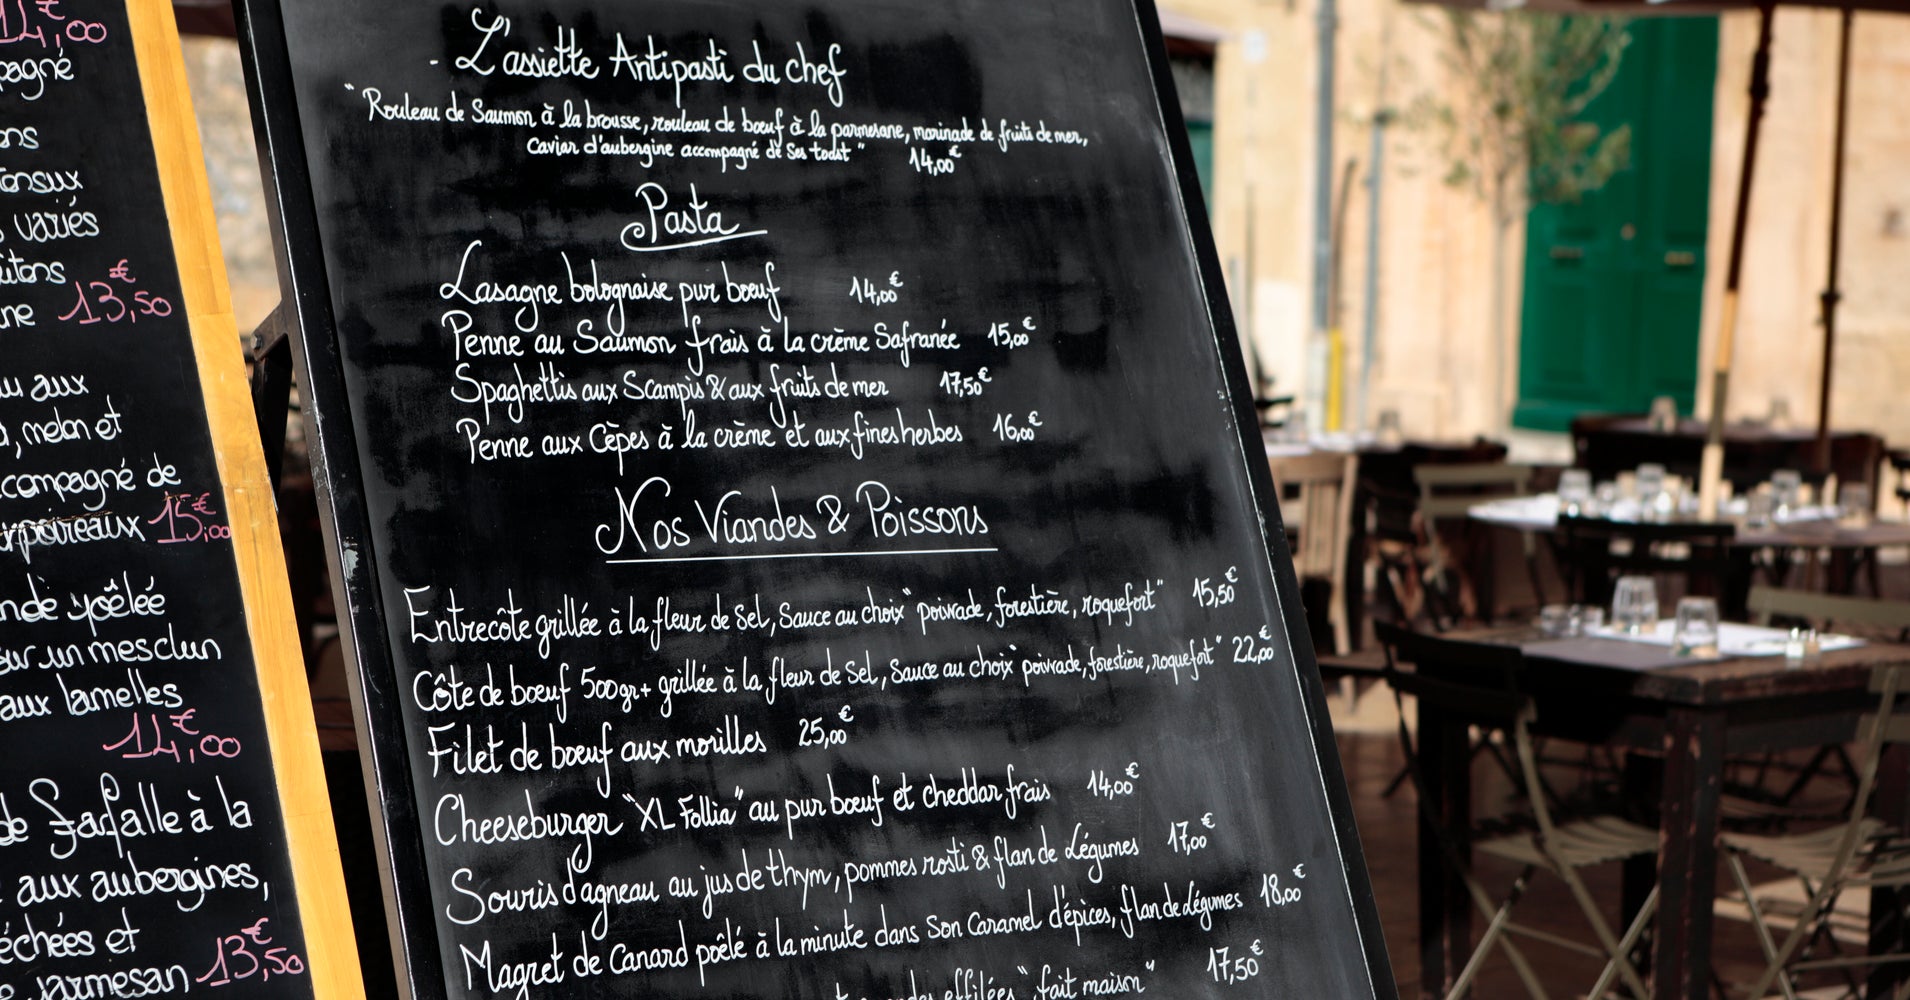 14,00€
ons
variés
13,50€
aux
, melon et
compagné de
15,00€
poêlée
sur un mesclun
aux lamelles
14,00€
de farfalle à la
aux aubergines,
échées et
parmesan 13,50€
- L'assiette Antipasti du chef
"Rouleau de Saumon à la brousse, rouleau de bœuf à la parmesane, marinade de fruits de mer,
Caviar d'aubergine accompagné de Ses toast" 14,00€
Pasta
Lasagne bolognaise pur bœuf 14,00€
Penne au Saumon frais à la crème Safranée 15,00€
Spaghettis aux Scampis & aux fruits de mer 17,50€
Penne aux Cèpes à la crème et aux fines herbes 16,00€
Nos Viandes & Poissons
Entrecôte grillée à la fleur de Sel, Sauce au choix "poivrade, forestière, roquefort" 15,50€
Côte de bœuf 500gr+ grillée à la fleur de Sel, Sauce au choix "poivrade, forestière, roquefort" 22,00€
Filet de bœuf aux morilles 25,00€
Cheeseburger "XL Follia" au pur bœuf et cheddar frais 14,00€
Souris d'agneau au jus de thym, pommes rosti & flan de Légumes 17,00€
Magret de Canard poêlé à la minute dans Son Caramel d'épices, flan de Légumes 18,00€
effilées "fait maison" 17,50€